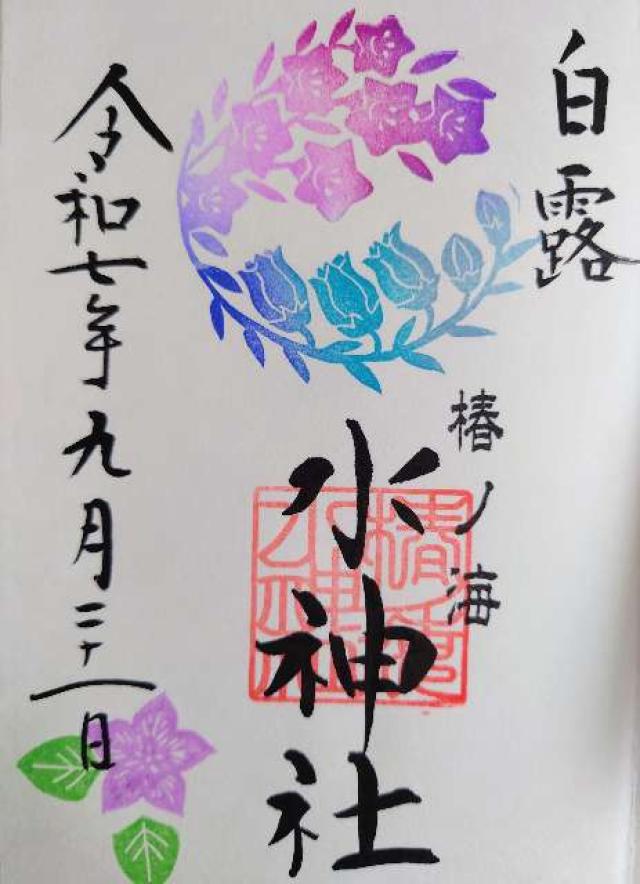 白露
椿ノ海
水神社
令和七年九月二十一日